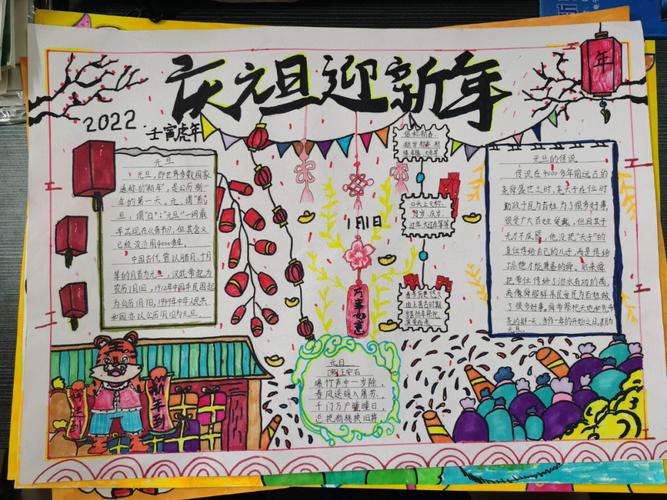 庆元旦迎新年
年
2022
壬寅虎年
元旦
元旦，即世界多数国家
通称的"新年"，是公历新一
年的第一天。元，谓"首"，
旦，谓"日"；"元旦"一词最
早出现在《晋书》，但其含义
已经沿用4000多年。
中国古代曾以腊月、十月
等的月首为元旦，汉武帝起为
农历1月1日，1912年中华民国起
为公历1月1日，1949年中华人民共
和国亦以公历1月1日为元旦。
1月1日
万事如意
元旦的传说
传说在4000多年前远古的
尧舜盛世之时，尧天子在位时
勤政于民为百姓办了很多好事，
很受广大百姓爱戴，但因其子
无才不太成器，他没把"天子"的
皇位传给自己的儿子，而是传给
品德才能兼备的舜，
把帝位传给了治水有功的禹，
禹像舜那样亦很爱民为百姓做
了很多好事，
元日
王安石
爆竹声中一岁除，
春风送暖入屠苏。
千门万户曈曈日，
总把新桃换旧符。
新年到